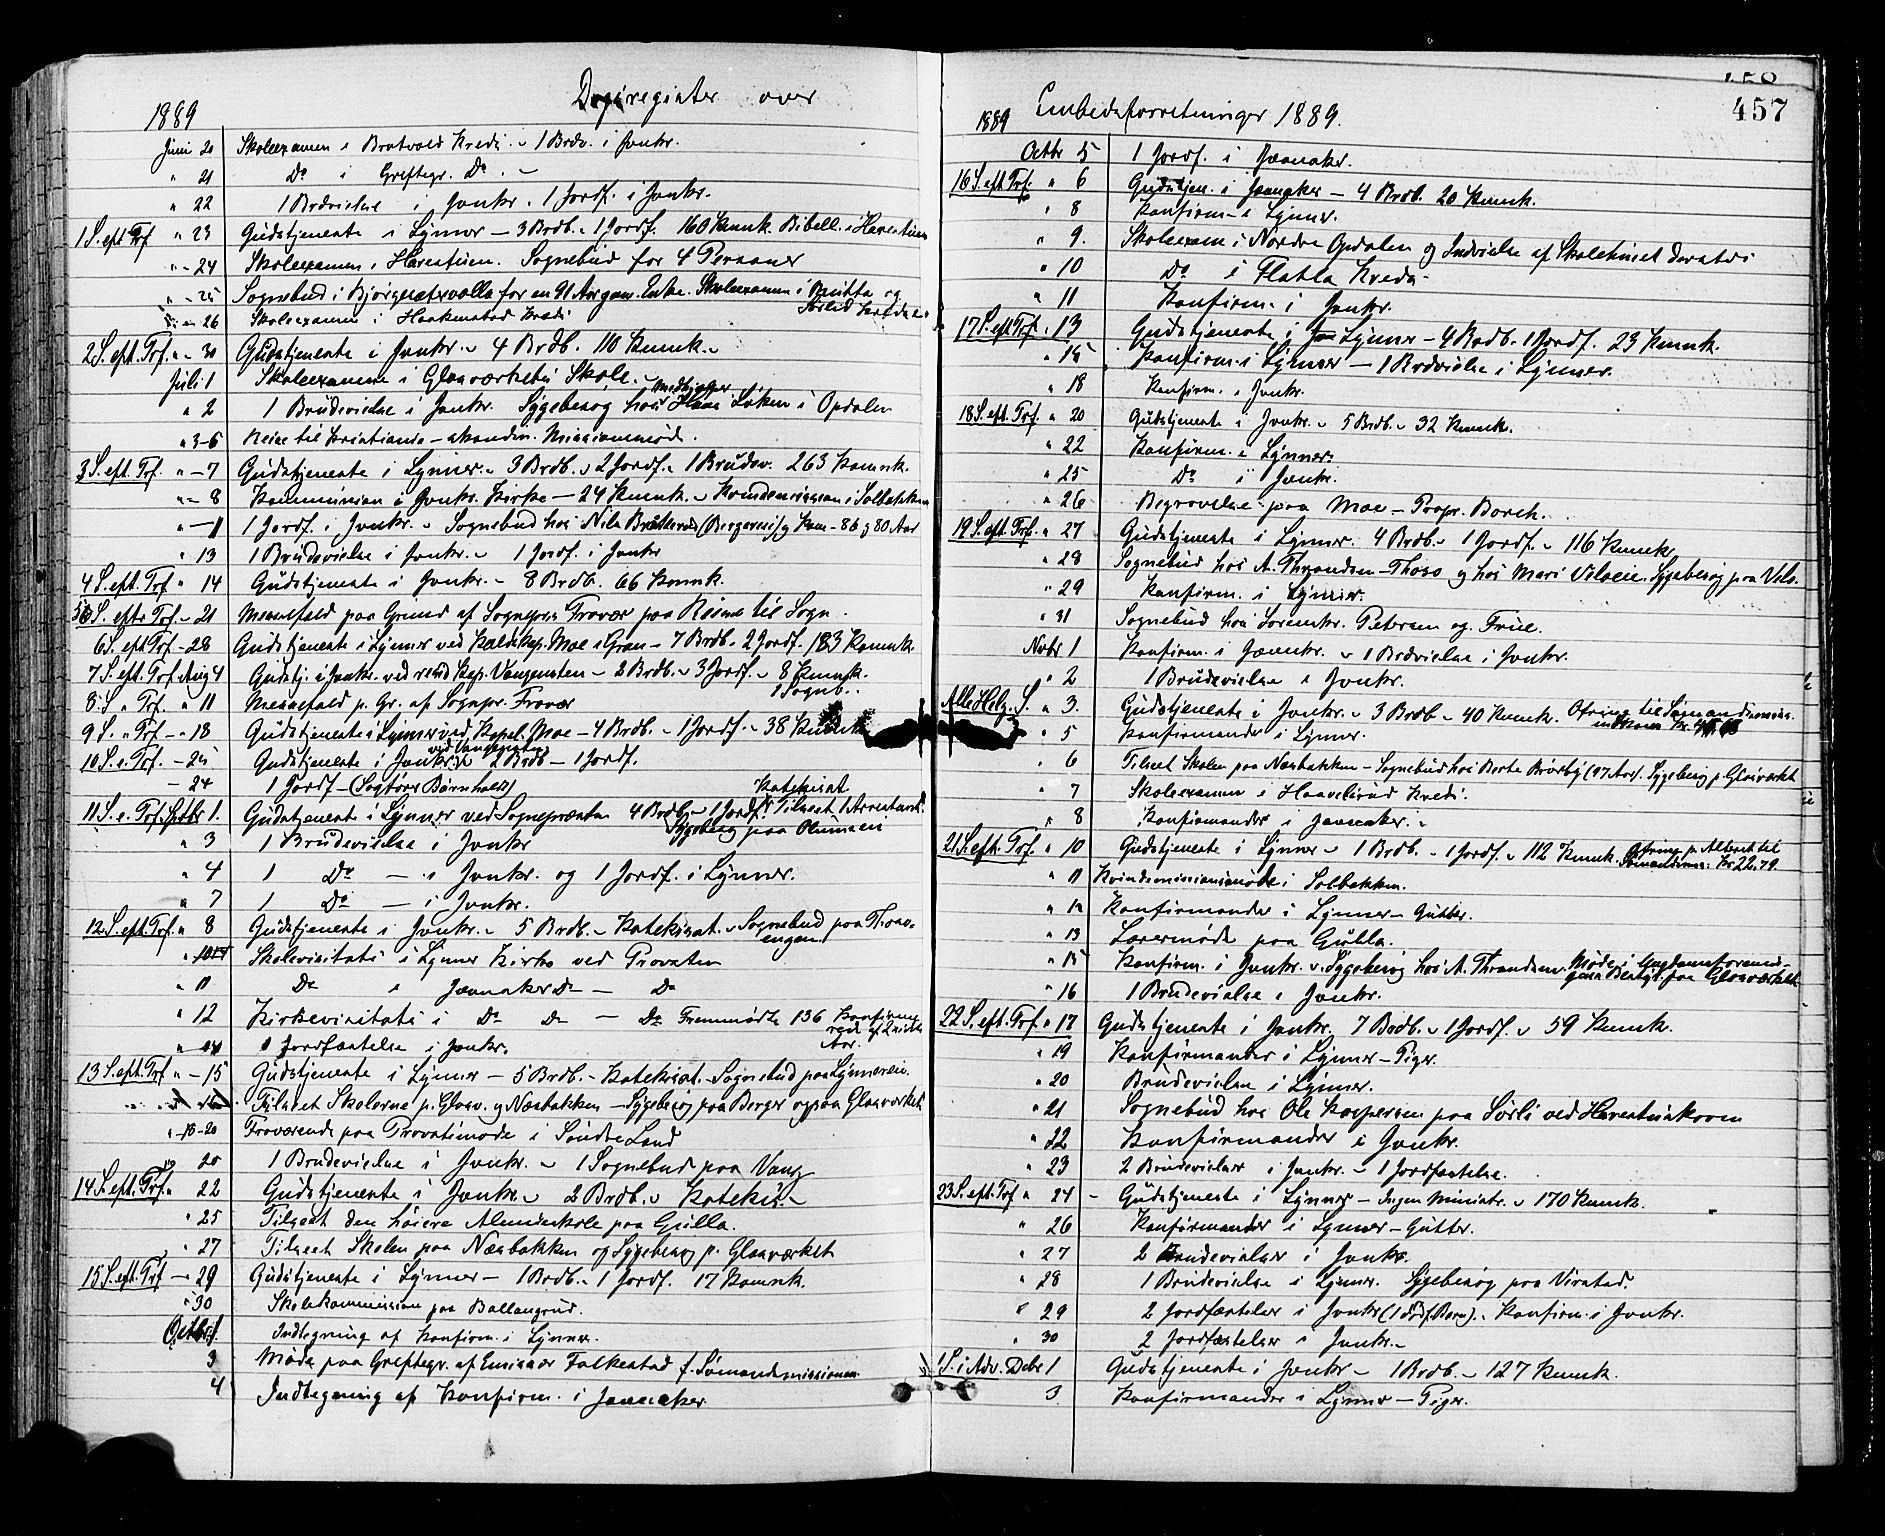 Dagsregister over
1889
Juni 20 Skoleexamen i Bratvold Kreds. 1 Brdv. i Jvnkr.
" 21 Do i Greftegr. Do. -
" 22 1 Brdvielse i Jvnkr. 1 Jordf. i Jvnkr.
1 S. eft Trf " 23 Gudstjeneste i Lynner - 3 Brdb. 1 Jordf. 160 Kmnk. Bibell. i Harestuen
" - 24 Skoleexamen i Harestuen. Sognebud for 4 Personer
" - 25 Sognebud i Bjørgesetervolla for en 91 Aar gam. Enke. Skoleexamen i og
" - 26 Skoleexamen i Haakenstad Kreds Sørlid Kreds
2 S. eft. Trf. " - 30 Gudstjeneste i Jvnkr. 4 Brdb. 110 Kmnk.
Juli 1 Skoleexamen i Glasværkets Skole.
" 2 1 Brudevielse i Jvnkr. Sygebesøg hos Medhjælper Hans Løken i Opdalen
" 3-6 Reise til Kristiania - skandin. Missionsmøde.
3 S. eft. Trf. " - 7 Gudstjeneste i Lynner. 3 Brdb. 2 Jordf. 1 Brudev. 263 Komnk.
" - 8 Kommunion i Jvnkr. Kirke - 24 Kmnk. Kvindemission i Solbakken
" - 11 1 Jordf. i Jvnkr. Sognebud hos Nils (Bergerei) og Kone - 86 og 80 Aar
" 13 1 Brudevielse i Jvnkr. 1 Jordf. i Jvnkr
4 S. eft. Trf " 14 Gudstjeneste i Jvnkr. - 8 Brdb. 66 Komnk.
5 S. eftr Trf. - 21 Messefald paa Grund af Sogneprs Fravær paa Reise til Sogn.
6 S. eft Trf - 28 Gudstjeneste i Lynner ved Kaldskap. Moe i Gran - 7 Brdb. 2 Jordf. 183 Komnk.
7 S. eft. Trf. Aug 4 Gudstj. i Jvnkr. ved resid Kap. Vangensten - 2 Brdb. 3 Jordf. 8 Kmnk. 1 Sogneb.
8 S " Trf. " 11 Messefald p. Gr. af Sognpr. Fravær
9 S. " Trf - 18 Gudstjeneste i Lynner ved Kapel. Moe - 4 Brdb. 1 Jordf. 38 Kmnk
10 S. e. Trf. - 25 Gudstjeneste i Jvnkr. ved Vangensten 2 Brdb - 1 Jordf.
- 24 1 Jordf - (Sogtøre Børnholdt)
11 S. e. Trf. Septbr 1. Gudstjeneste i Lynner ved Sognepræsten 4 Brdb. 1 Jordf. Katekisat. Tilseet 1 Arrestant. Sygebesøg paa Olumseie
" 3 1 Brudevielse i Jvnkr
" 4 1 Do - i Jvnkr. og 1 Jordf. i Lynner.
" 7 1 Do - i Jvnkr.
12 S. eft. Trf. " 8 Gudstjeneste i Jvnkr. 5 Brdb. Katekisat. Sognebud paa Thravengen.
" 10 Skolevisitats i Lynner Kirke ved Provsten
" 11 Do i Jævnaker Do - Do
" 12 Kirkevisitats i Do Do - Do Fremmødte 136 Konfirmerede af 2 sidste Aar.
" 14 1 Jordfæstelse i Jvnkr.
13 S. eft. Trf " - 15 Gudstjeneste i Lynner - 5 Brdb. - Katekisat. Sognebud paa Lynnereie.
" - 16 Tilseet Skolerne p. Glasv. og Næsbakken - Sygebesøg paa Berger og paa Glasværket
" - 18-20 Fraværende paa Provstimøde i Søndre Land
20 1 Brudevielse i Jvnkr. 1 Sognebud paa Vang
14 S. eft. Trf. " 22 Gudstjeneste i Jvnkr. 2 Brdb. Katekis.
" 25 Tilseet den høiere Almueskole paa Gulla.
" 27 Tilseet Skolen paa Næsbakken og Sygebesøg p. Glasværket
15 S. eft. Trf - 29 Gudstjeneste i Lynner - 1 Brdb. 1 Jordf. 17 Komnk.
" 30 Skolekommission paa Ballangrud.
Octbr 1. Indtegning af Konfirm. i Lynner.
3 Møde paa Greftegr. af Emissær Falkestad f. Sømandsmissionen
4 Indtegning af Konfirm. i Jævnaker
457
1889 Embedsforretninger 1889.
Octbr 5 1 Jordf. i Jævnaker.
16 S. eft Trf. " 6 Gudstjen. i Jævnaker - 4 Brdb. 20 Kmnk.
" 8 Konfirm. i Lynner.
" 9. Skoleexam i Nordre Opdalen og Indvielse af Skolehuset dersteds
" 10 Do i Flatla Kreds
" 11 Konfirm. i Jvnkr.
17 S. eft Trf. " 13 Gudstjeneste i Lynner - 4 Brdb. 1 Jordf. 23 Kmnk.
" 15 Konfirm. i Lynner - 1 Brdvielse i Lynner.
" 18 Konfirm. i Jvnkr.
18 S. eft. Trf. " 20 Gudstjeneste i Jvnkr. 5 Brdb. 32 Kmnk.
" 22 Konfirm. i Lynner.
" 25 Do i Jvnkr.
" 26 Begravelse paa Moe - Propr. Borch.
19 S. eft. Trf. " 27 Gudstjeneste i Lynner. 4 Brdb. 1 Jordf. 116 Kmnk
" 28 Sognebud hos A. Thrandsen - Thoso og hos Mari Velseie. Sygebesøg paa Vels.
" 29 Konfirm. i Lynner.
" 31 Sognebud hos Lorensknr. Petersen og Frue.
Novbr 1 Konfirm. i Jævnkr. 1 Brdvielse i Jvnkr.
" 2 1 Brudevielse i Jvnkr.
Alle Helg. S. " 3. Gudstjeneste i Jvnkr. 3 Brdb. 40 Kmnk. Ofring til Sømandsmiss. indkom Kr.
" 5 Konfirmander i Lynner.
" 6 Tilseet Skolen paa Næsbakken - Sognebud hos Berte Brørby (97 Aar). Sygebesøg p. Glasværket
" 7 Skoleexamen i Haavelsrud Kreds.
" 8 Konfirmander i Jævnaker.
21 S. eft. Trf. " 10 Gudstjeneste i Lynner - 1 Brdb. - 1 Jordf. 112 Kmnk. Ofring p. Alteret til Sømandsmis. Kr. 22.79.
" 11 Kvindemissionsmøde i Solbakken.
" 12 Konfirmander i Lynner - Gutter.
" 13 Lærermøde paa Gulla.
" 15 Konfirm. i Jvnkr. Sygebesøg hos A. Thrandsen. Møde i Ungdomsforening paa Glasværket
" 16 1 Brudevielse i Jvnkr.
22 S. eft. Trf " 17 Gudstjeneste i Jvnkr. 7 Brdb. 1 Jordf. 59 Kmnk.
" 19 Konfirmander i Lynner - Piger.
" 20 Brudevielse i Lynner.
" 21 Sognebud hos Ole Kaspersen paa Sørli ved Harestuskoven
" 22 Konfirmander i Jvnkr.
" 23 2 Brudevielser i Jvnkr. 1 Jordfæstelse.
23 S. eft. Trf " 24 - Gudstjeneste i Lynner - Ingen Ministr. 170 Kmnk.
" 26 Konfirmander i Lynner - Gutter.
" 27 2 Brudevielser i Jvnkr.
" 28 1 Brudevielse i Lynner. Sygebesøg paa Virstad.
" 29 2 Jordfæstelser i Jvnkr (1 dødf. Barn). Konfirm. i Jvnkr.
" 30 2 Jordfæstelser i Jvnkr.
1 S. i Adv. Debr 1 Gudstjeneste i Jvnkr - 1 Brdb. 127 Kmnk.
3. Konfirmander i Lynner - Piger.